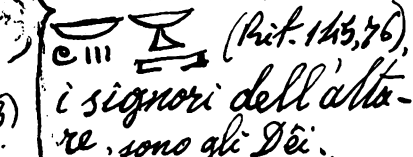 (Rit. 145,76),
i signori dell'alta-
re, sono gli Dêi.